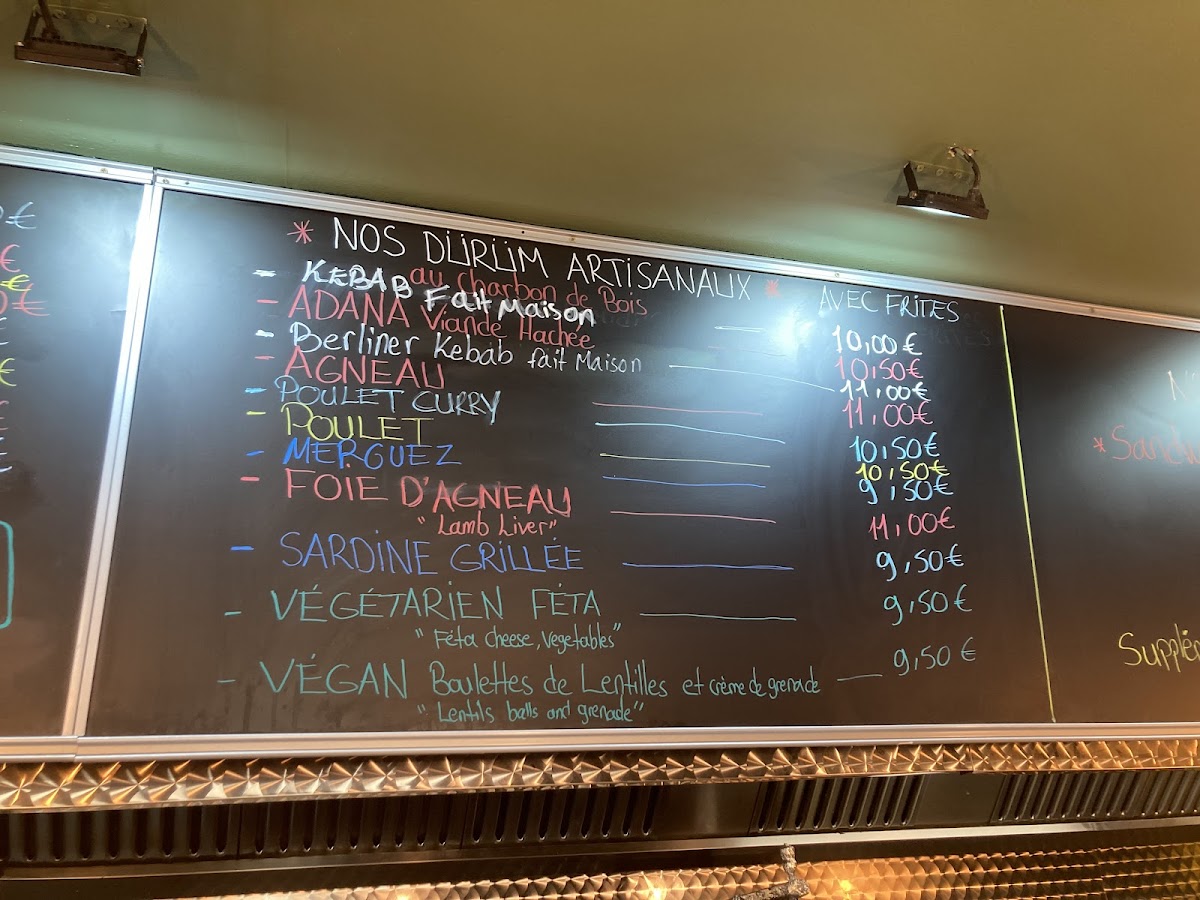 * NOS DÜRÜM ARTISANAUX *
au charbon de Bois
AVEC FRITES
- KEBAB Fait Maison 10,00€
- ADANA Viande Hachée 10,50€
- Berliner Kebab fait Maison 11,00€
- AGNEAU 11,00€
- POULET CURRY 10,50€
- POULET 10,50€
- MERGUEZ 9,50€
- FOIE D'AGNEAU 11,00€
"Lamb Liver"
- SARDINE GRILLÉE 9,50€
- VÉGÉTARIEN FÉTA 9,50€
"Féta cheese, Vegetables"
- VÉGAN Boulettes de Lentilles et crème de grenade 9,50€
"Lentils balls and grenade"